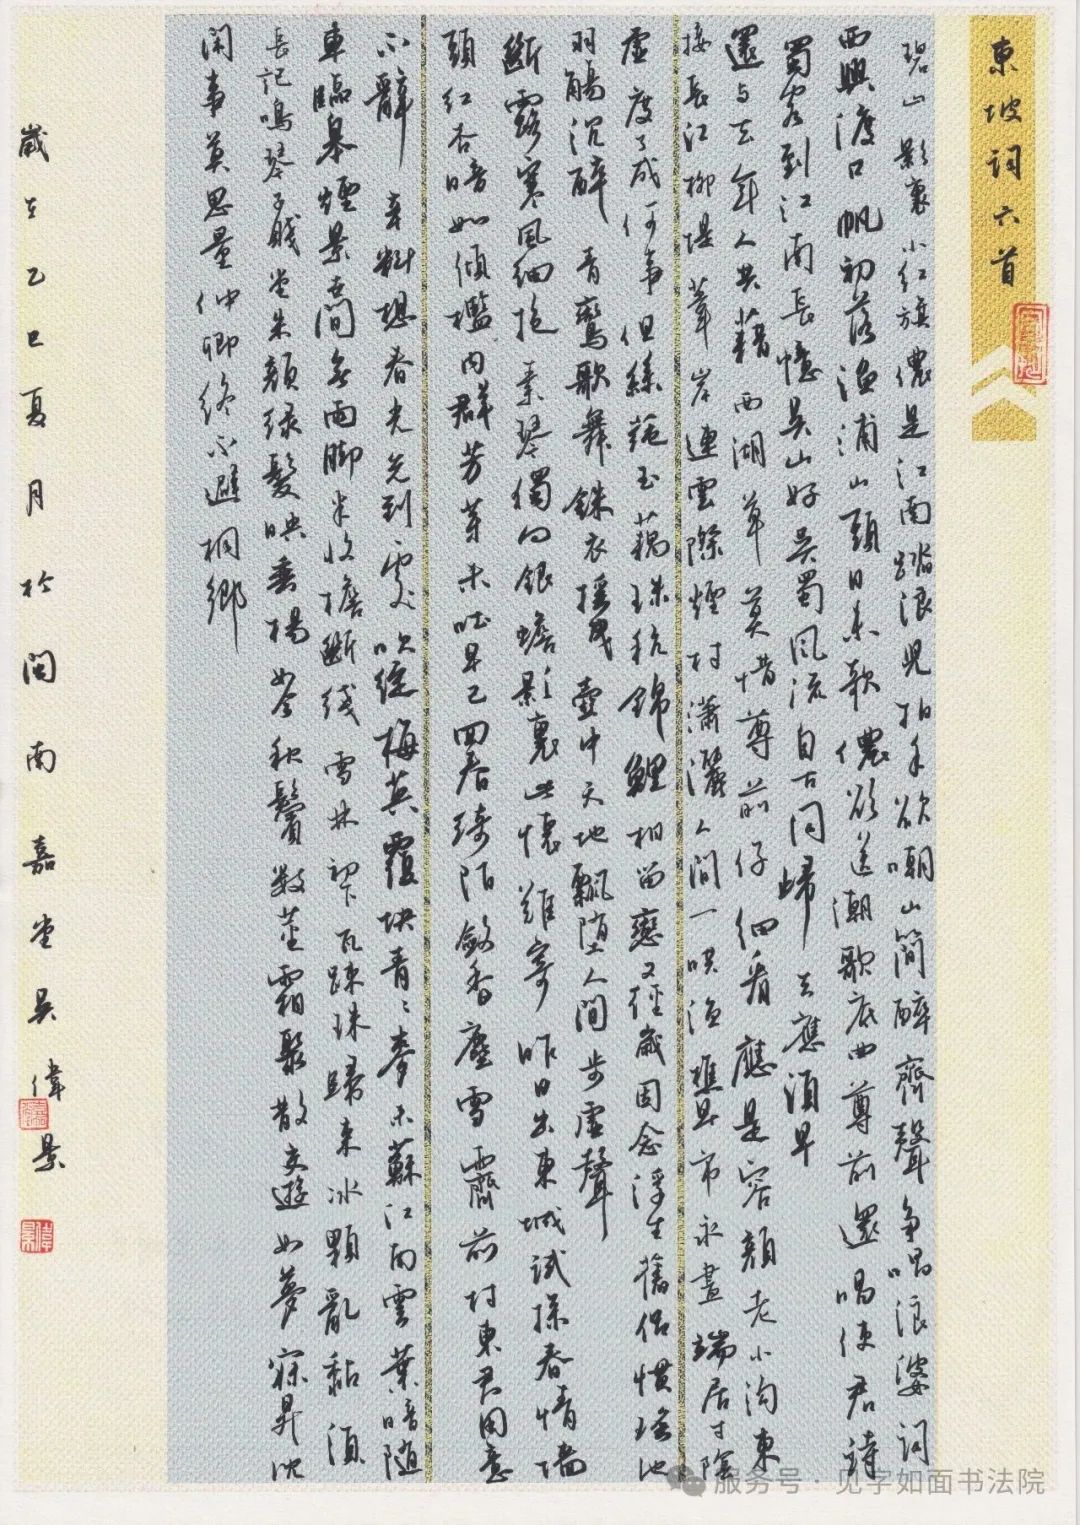 東坡詞六首
碧山影裏小紅旗儂是江南踏浪兒拍手欲嘲山簡醉齊聲争唱浪婆詞
西興渡口帆初落漁浦山頭日未欹儂欲送潮歌底曲尊前還唱使君詩
蜀客到江南長憶吳山好吳蜀風流自古同歸去應須早
還与去年人共藉西湖草莫惜尊前仔細看應是容顏老小溝東
接長江柳堤葦岸連雲際煙村瀟灑人間一哄漁樵早市永晝端居寸陰
虛度了成何事但絲蒓玉藕珠粳錦鯉相留戀又經歲因念浮生舊侶慣瑤池
羽觴沉醉青鸞歌舞銖衣搖曳壺中天地飄墮人間步虛聲
斷露寒風細抱素琴獨向銀蟾影裏此懷難寄昨日出東城試探春情墻
頭紅杏暗如傾檻內群芳芽未吐早已回春綺陌斂香塵雪霽前村東君用意
不辭辛料想春光先到處吹綻梅英覆块青々麥未蘇江南雲葉暗随
車臨皋煙景世間無雨脚半收檐斷綫雪林初下瓦疎珠歸来冰顆亂黏須
長記鳴琴子賤堂朱顏緑髮映垂楊如今秋鬢數莖霜聚散交遊如夢寐昇沈
閑事莫思量仲卿終不避桐鄉
歲在乙巳夏月於閩南嘉堂吳偉景
服务号·见字如面书法院